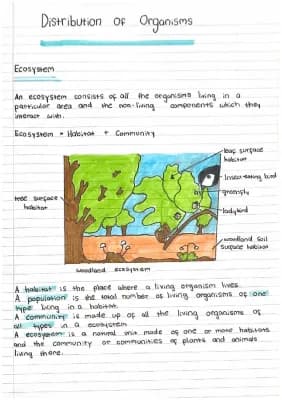 Distribution of Organisms
Ecosystem
An ecosystem consists of all the organisms living in a
particular area and the non-living components which they
interact with.
Ecosystem = Habitat + Community
leaf surface
habitat
insect-eating bird
greenfly
ladybird
tree surface
habitat
woodland soil
surface habitat
woodland ecosystem
A habitat is the place where a living organism lives.
A population is the total number of living organisms of one
type living in a habitat.
A community is made up of all the living organisms of
all types in a ecosystem
A ecosystem is a natural unit made of one or more habitats
and the community or communities of plants and animals
living there.